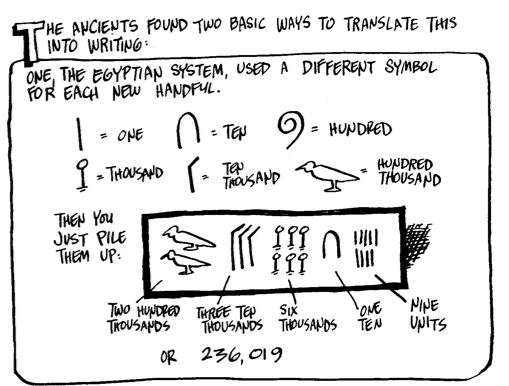 THE ANCIENTS FOUND TWO BASIC WAYS TO TRANSLATE THIS
INTO WRITING:
ONE, THE EGYPTIAN SYSTEM, USED A DIFFERENT SYMBOL
FOR EACH NEW HANDFUL.
= ONE
= TEN
= HUNDRED
= THOUSAND
= TEN
THOUSAND
= HUNDRED
THOUSAND
THEN YOU
JUST PILE
THEM UP:
TWO HUNDRED
THOUSANDS
THREE TEN
THOUSANDS
SIX
THOUSANDS
ONE
TEN
NINE
UNITS
OR 236,019